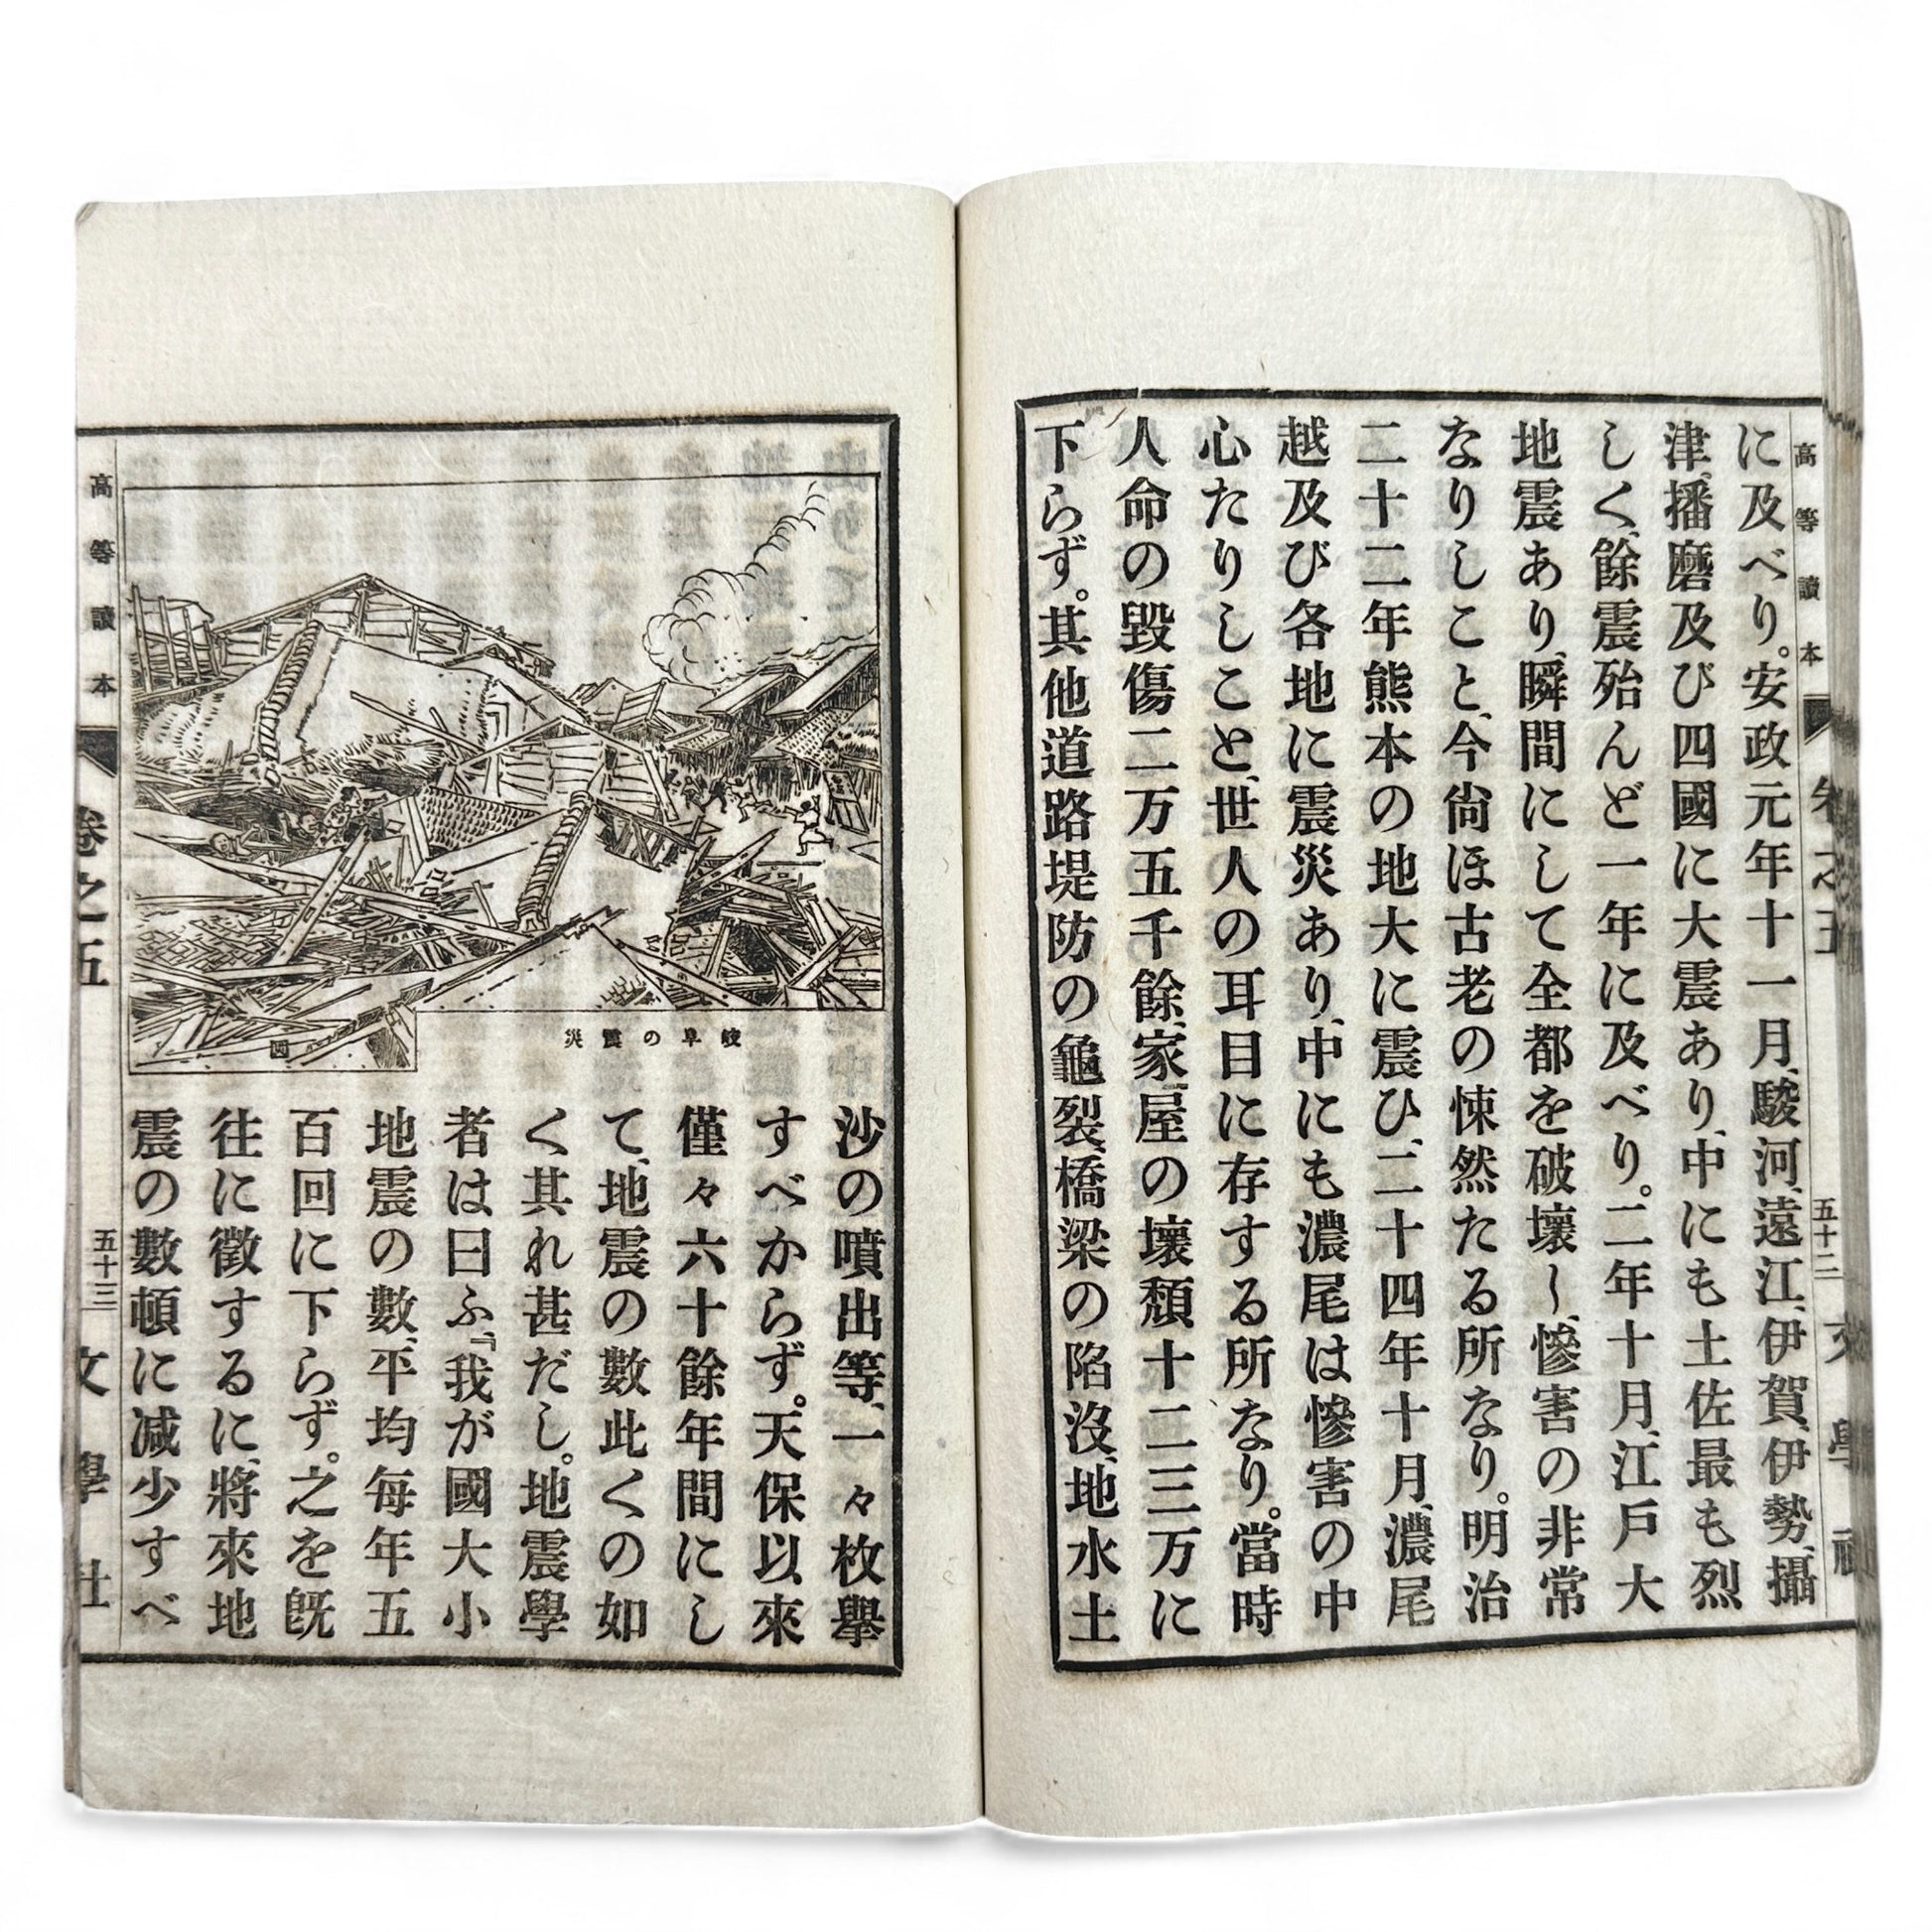 高等讀本
卷之五
五十二
文學社
に及べり。安政元年十一月、駿河、遠江、伊賀、伊勢、攝
津、播磨及び四國に大震あり、中にも土佐最も烈
しく、餘震殆んど一年に及べり。二年十月、江戶大
地震あり、瞬間にして全都を破壞し、慘害の非常
なりしこと、今尙ほ古老の悚然たる所なり。明治
二十二年熊本の地大に震ひ、二十四年十月、濃尾
越及び各地に震災あり、中にも濃尾は慘害の中
心たりしこと、世人の耳目に存する所なり。當時
人命の毀傷二万五千餘、家屋の壞頽十二三万に
下らず。其他道路堤防の龜裂、橋梁の陷沒、地水土
岐阜の震災
圖
沙の噴出等、一々枚擧
すべからず。天保以來
僅々六十餘年間にし
て、地震の數此くの如
く其れ甚だし。地震學
者は曰ふ、『我が國大小
地震の數、平均每年五
百回に下らず。之を旣
往に徵するに、將來地
震の數頓に減少すべ
高等讀本
卷之五
五十三
文學社